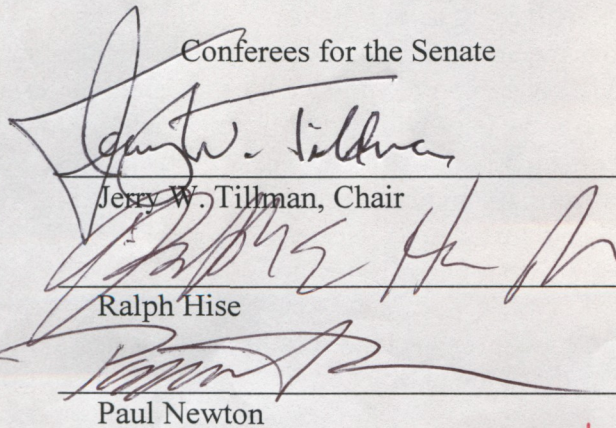 Conferees for the Senate
Jerry W. Tillman
Jerry W. Tillman, Chair
Ralph Hise
Paul Newton